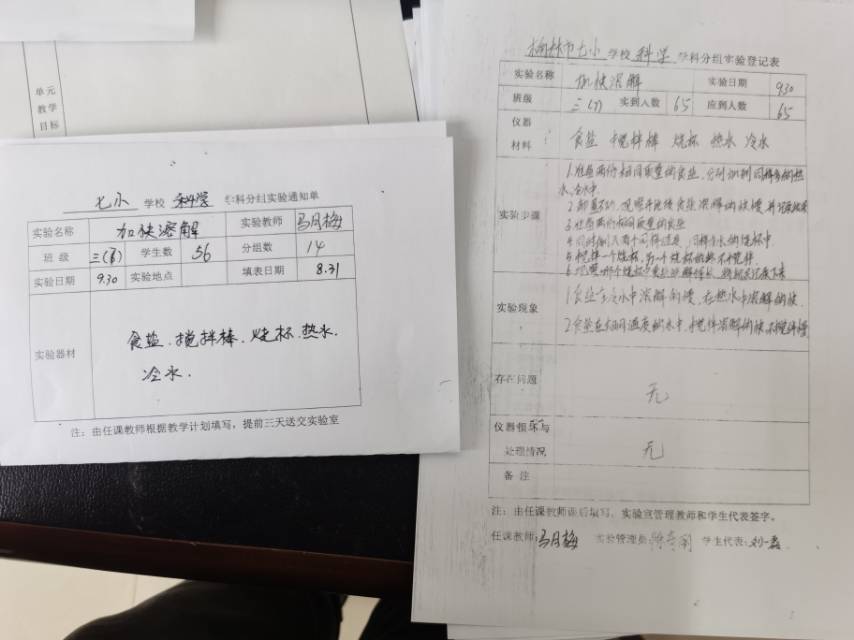 单元
教学
目标
七小 学校 科学 学科分组实验通知单
实验名称 加快溶解 实验教师 马月梅
班级 三(6) 学生数 56 分组数 14
实验日期 9.30 实验地点 填表日期 8.31
实验器材 食盐.搅拌棒.烧杯.热水.
冷水.
注：由任课教师根据教学计划填写，提前三天送交实验室
榆林市七小 学校 科学 学科分组实验登记表
实验名称 加快溶解 实验日期 9.30
班级 三(7) 实到人数 65 应到人数 65
仪器
材料 食盐 搅拌棒 烧杯 热水 冷水
实验步骤
1.准备两份相同质量的食盐，分别加到同样多的热
水、冷水中
3.准备两份相同质量的食盐
实验现象
1.食盐在冷水中溶解的慢，在热水中溶解的快
2.食盐在相同温度的水中，搅拌溶解的快，不搅拌慢
存在问题 无
仪器损坏与
处理情况 无
备注
注：由任课教师课后填写，实验室管理教师和学生代表签字。
任课教师：马月梅 实验管理员： 学生代表：